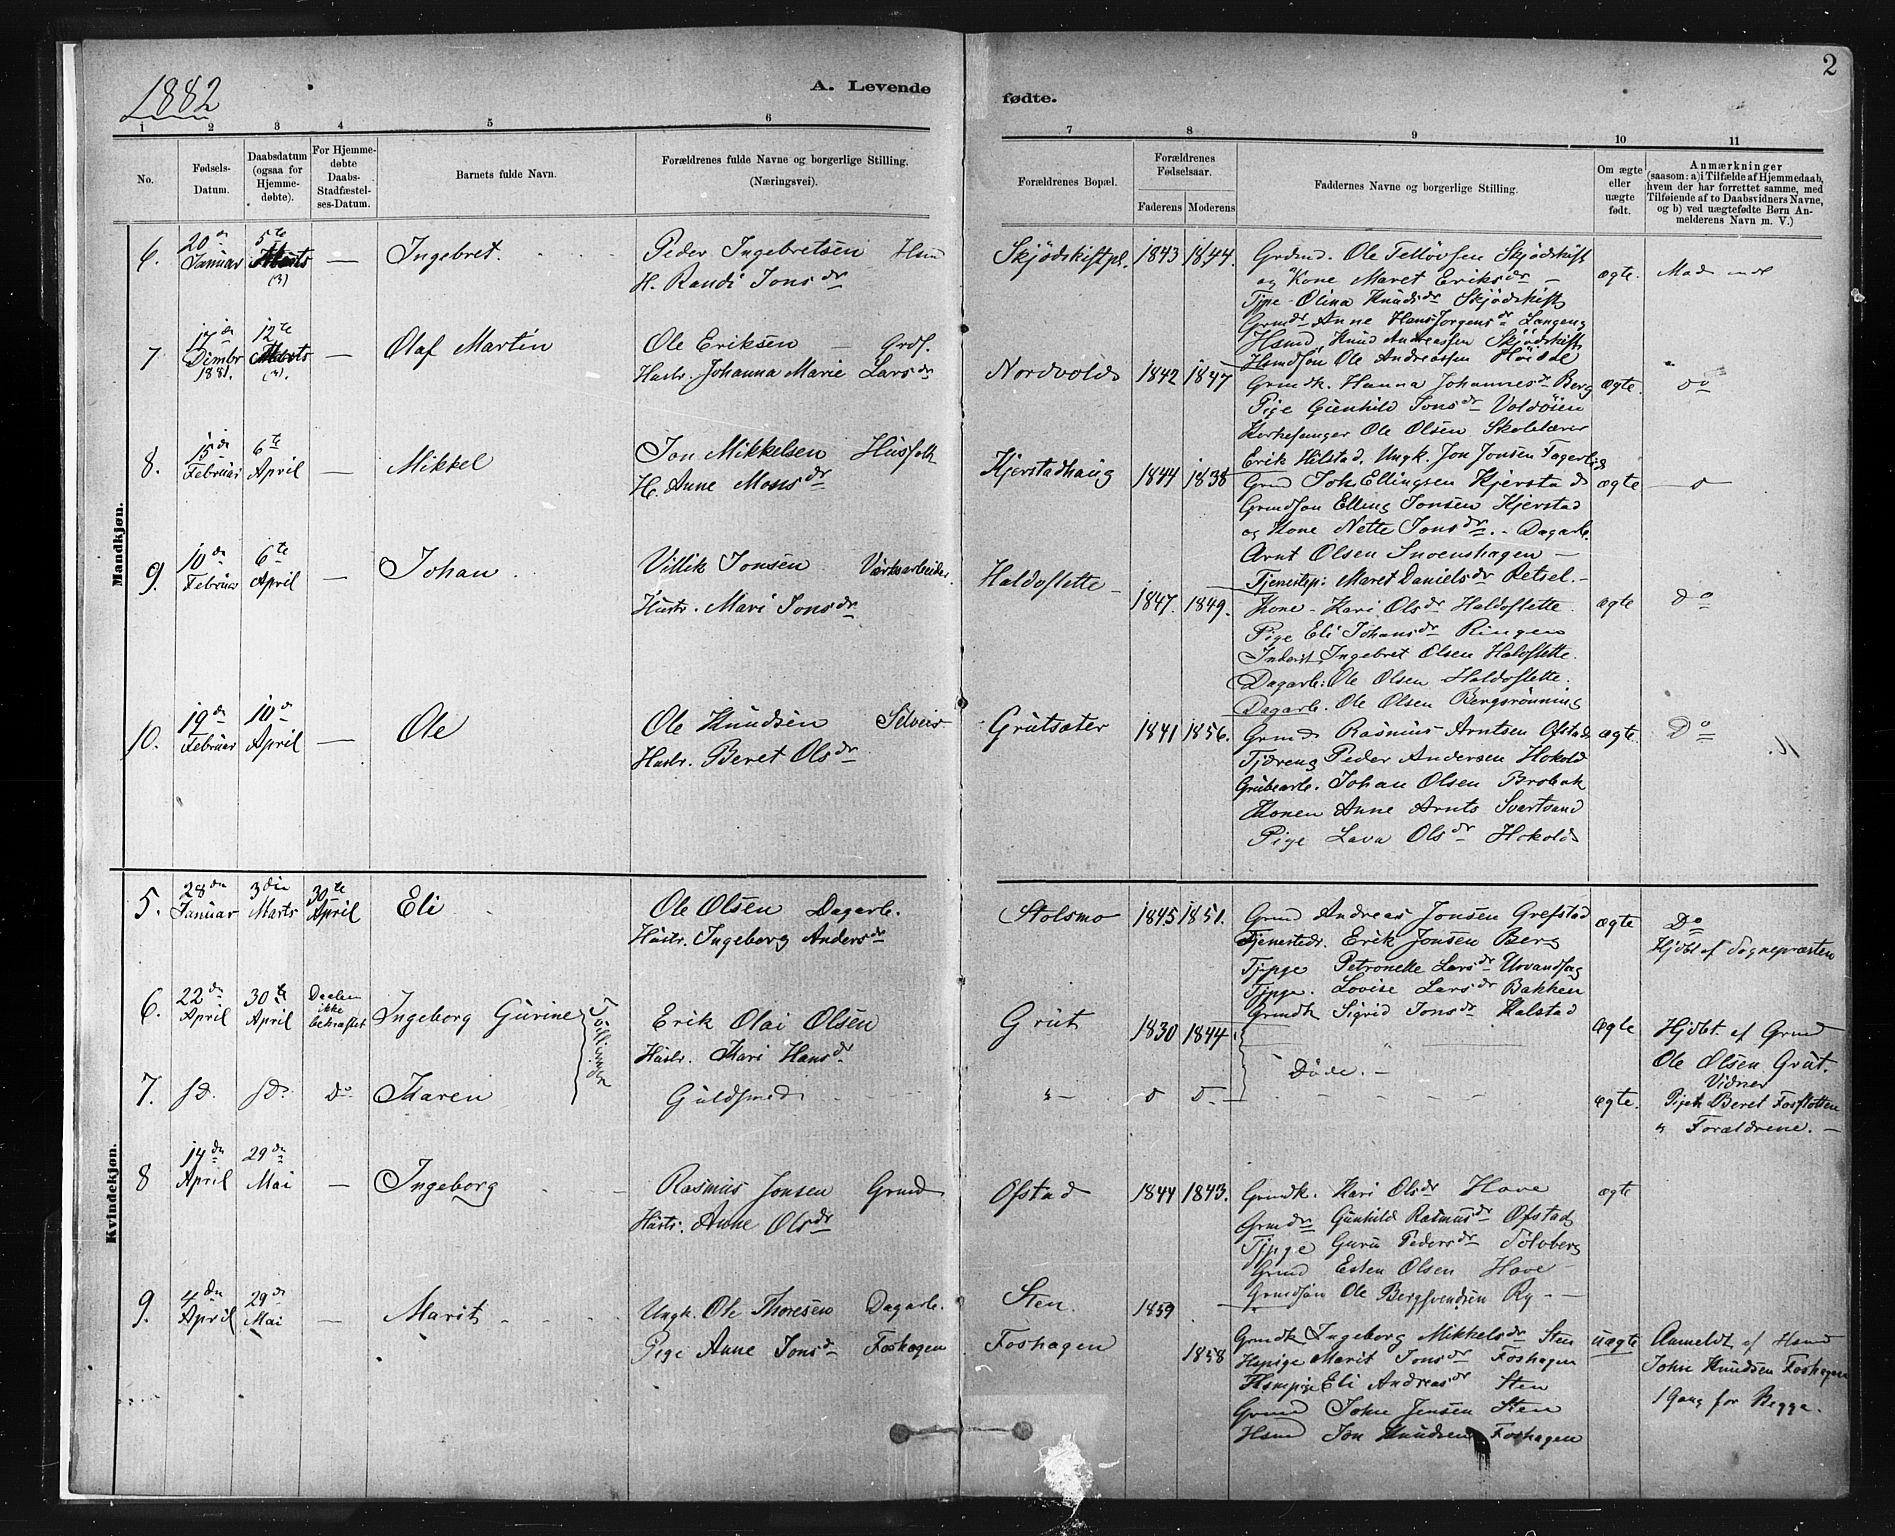 2
1882
A. Levende
fødte.
1 2 3 4 5 6 7 8 9 10 11
No.
Fødsels-Datum.
Daabsdatum (ogsaa for Hjemmedøbte).
For Hjemmedøbte Daabs-Stadfæstelses-Datum.
Barnets fulde Navn.
Forældrenes fulde Navne og borgerlige Stilling. (Næringsvei).
Forældrenes Bopæl.
Forældrenes Fødselsaar.
Faderens Moderens
Faddernes Navne og borgerlige Stilling.
Om ægte eller uægte født.
Anmærkninger
(saasom: a) i Tilfælde af Hjemmedaab, hvem der har forrettet samme, med Tilføiende af to Daabsvidners Navne, og b) ved uægtefødte Børn Anmelderens Navn m. V.)
Mandkjøn.
6. 20de Januar 5te Marts (3) — Ingebret.
Peder Ingebretsen Hsmd
H. Randi Jonsdr
Skjödskiftpl. 1843 1844.
Grdmd. Ole Tellövsen Skjödskift
og Kone Maret Eriksdr —
Tjpe - Olina Knudsdr Skjödskift
Grmdr Anne Hans Jorgensdr Langeng
Hsmd, Knud Andreassen Skjödskift
ægte.
7 17de Dcmbr 1881. 12te Marts (3). — Olaf Martin
Ole Eriksen — Grdf.
Hustr. Johanna Marie Larsdr
Nordvolds 1842 1847
Hsmdsøn Ole Andreassen
Grmdk. Hanna Johannesdr Berg
Pige Gunhild Jonsdr Voldöien
Kirkesanger Ole Olsen Skolelærer
Erik Hilstad, Ungk. Jon Jonsen Fagerlid
ægte. do
8. 15de Februar 6te April — Mikkel
Jon Mikkelsen Husfolk
H. Anne Monsdr
Kjerstadhaug 1844 1838
Grmd Joh. Ellingsen Kjerstad
Grmdsøn Elling Jonsen Kjerstad
og Kone Nette Jonsdr. - Dagarb.
Arnt Olsen Snoenshagen —
Tjenestep: Maret Danielsdr Retsel. —
ægte
9. 10de Februar 6te April — Johan.
Villik Jonsen Værksarbeider.
Hustr. Mari Jonsdr
Haldoslette — 1847. 1849.
Kone - Kari Olsdr Haldoslette.
Pige Eli Johansdr Ringen
Inderst, Ingebret Olsen Haldoslette.
Dagarb: Ole Olsen Haldoslette.
Dagarb. Ole Olsen Bergsrönning
ægte do
10. 19de Februar 10de April — Ole
Ole Knudsen Selveier
Hustr. Beret Olsdr
Grutsæter 1841 1856.
Grmd Rasmus Arntsen Ofstad
Tjdreng Peder Andersen Hokold
Grubearb. Johan Olsen Brobak
Konen Anne Arnts Svartsand
Pige Lava Olsdr Hokold
ægte. Do
Kvindekjøn.
5. 28de Januar 3die Marts 30te April Eli
Ole Olsen Dagarb.
Hustr. Ingeborg Andersdr
Stolsmo 1845 1851.
Grmd Andreas Jonsen Grefstad
Tjenestedr. Erik Jonsen Berg
Tjpge Petronelle Larsdr Urvandsog
Tjpge. Lovise Larsdr Bakken
Grmdk Sigrid Jonsdr Halstad
ægte Do
Hjdbt af Sognepræsten
6. 22de April 30te April Daaben ikke bekræftet Ingeborg Gurine
Tvillinger
Erik Olai Olsen
Hustr. Kari Hansdr
Grut 1830 1844
Døde. —
ægte
Hjdbt. af Grmd
Ole Olsen Grut.
Vidner
7. do. do. Do Karen
Guldsmed
ægte. Pigen Beret Fosslotten
" Forældrene. —
8 14de April 29de Mai — Ingeborg
Rasmus Jonsen Grmd
Hustr. Anne Olsdr
Ofstad 1844 1843.
Grmdk. Kari Olsdr Hove
Grmdr Gunhild Rasmusdr Ofstad
Tjpge Guru Pedersdr Solvberg
Grmd Esten Olsen Hove —
Grmdsøn Ole Bergsvendsen Ry - —
ægte
9. 4de April 29de Mai — Marit
Ungk. Ole Thoresen Dagarb.
Pige Anne Jonsdr Foshagen
Sten. 1859
Foshagen 1858
Grmdk Ingeborg Mikkelsdr Sten
Hspige Marit Jonsdr Foshagen
Hsmpige Eli Andreasdr Sten
Grmd John Jensen Sten
Hsmd Jon Knudsen Foshagen
uægte
Anmeldt af Hsmd
John Knudsen Foshagen
1 Gang for Begge.